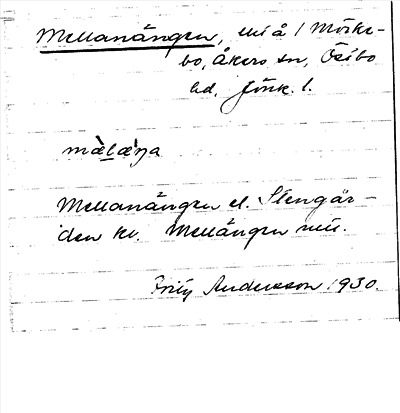 Mellanängen, till å 1 Mörke-
bo, Åkers sn, Östbo
hd, Jönk. l.
mæ̀læ̀ŋa
Mellanängen el. Stengär-
den kl. Mellängen
Fritz Andersson 1930.